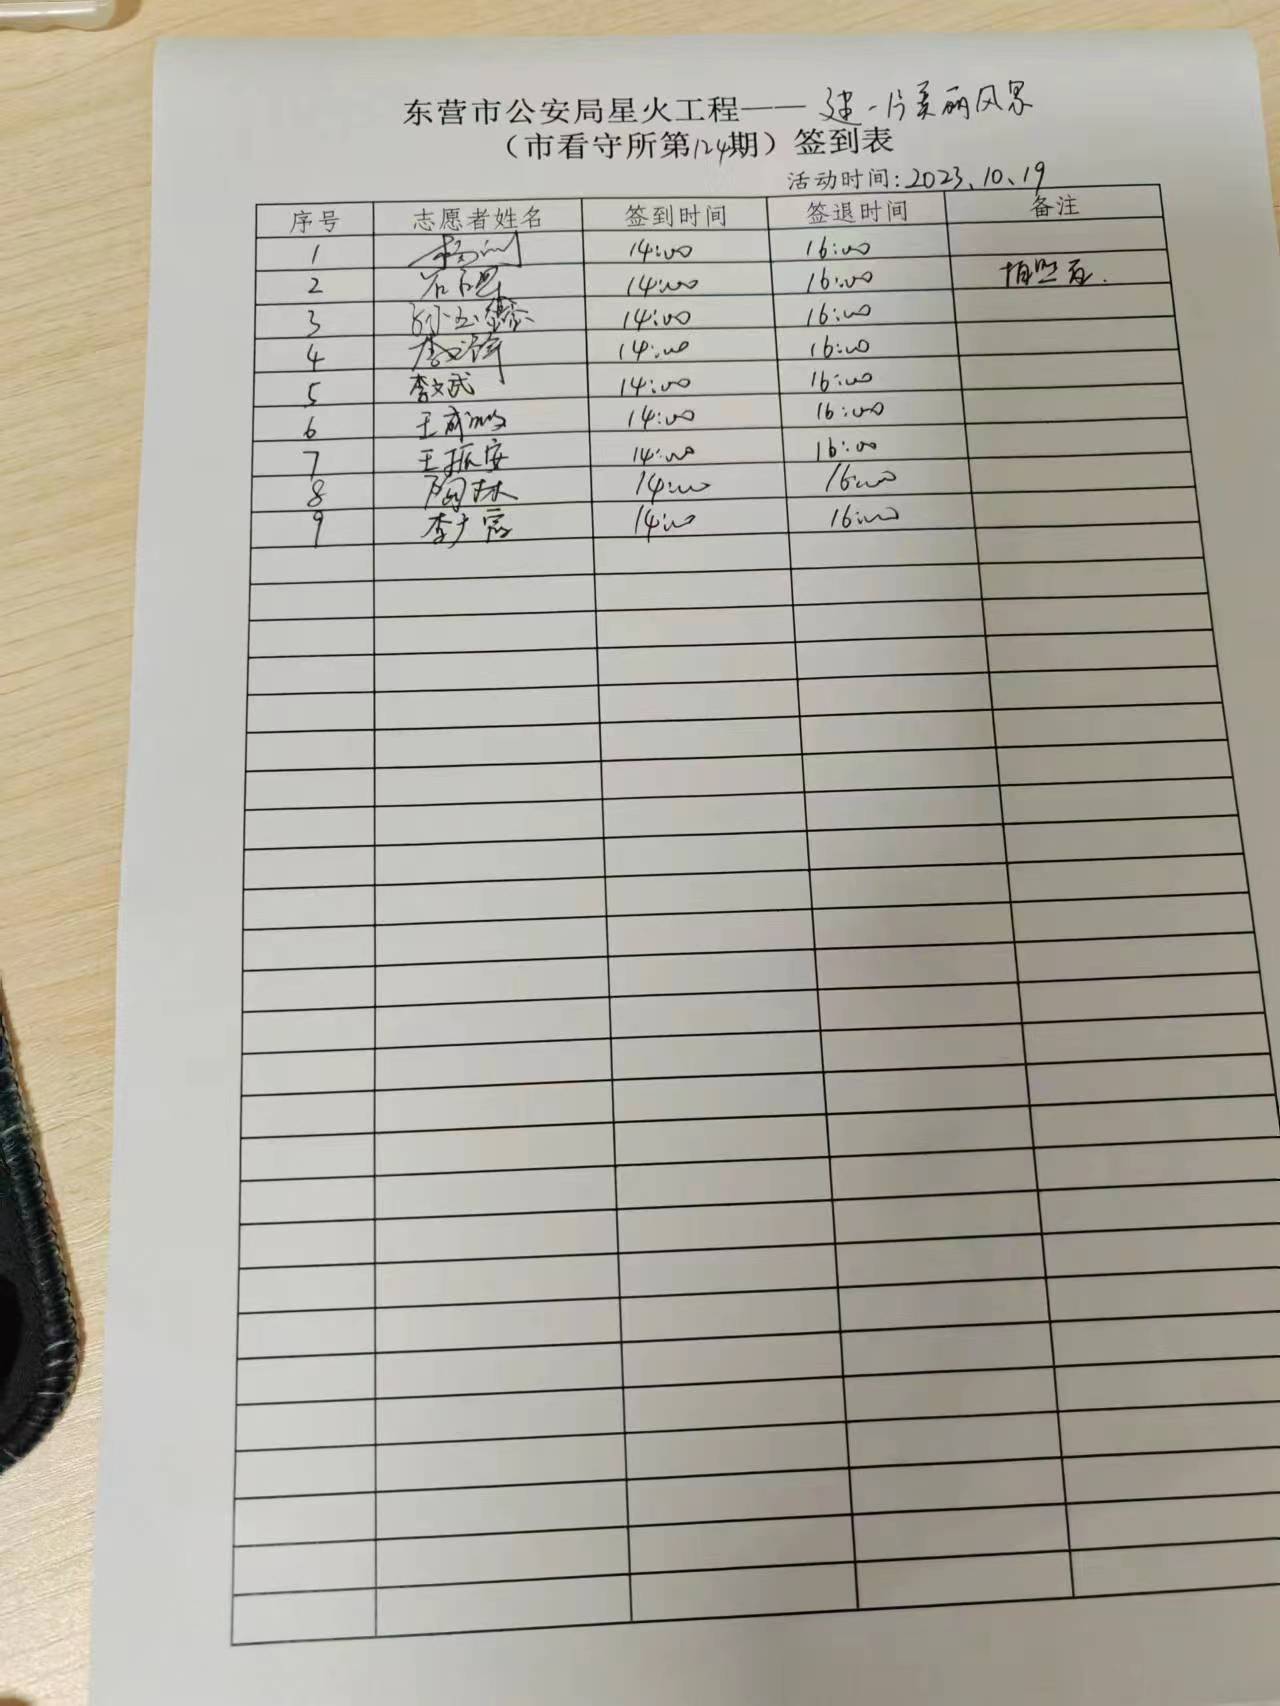 东营市公安局星火工程——建一片美丽风景
（市看守所第124期）签到表
活动时间：2023、10、19
序号 志愿者姓名 签到时间 签退时间 备注
1 14:00 16:00
2 14:00 16:00
3 孙玉 14:00 16:00
4 李 14:00 16:00
5 李文武 14:00 16:00
6 王 14:00 16:00
7 王振安 14:00 16:00
8 陶林 14:00 16:00
9 李广 14:00 16:00